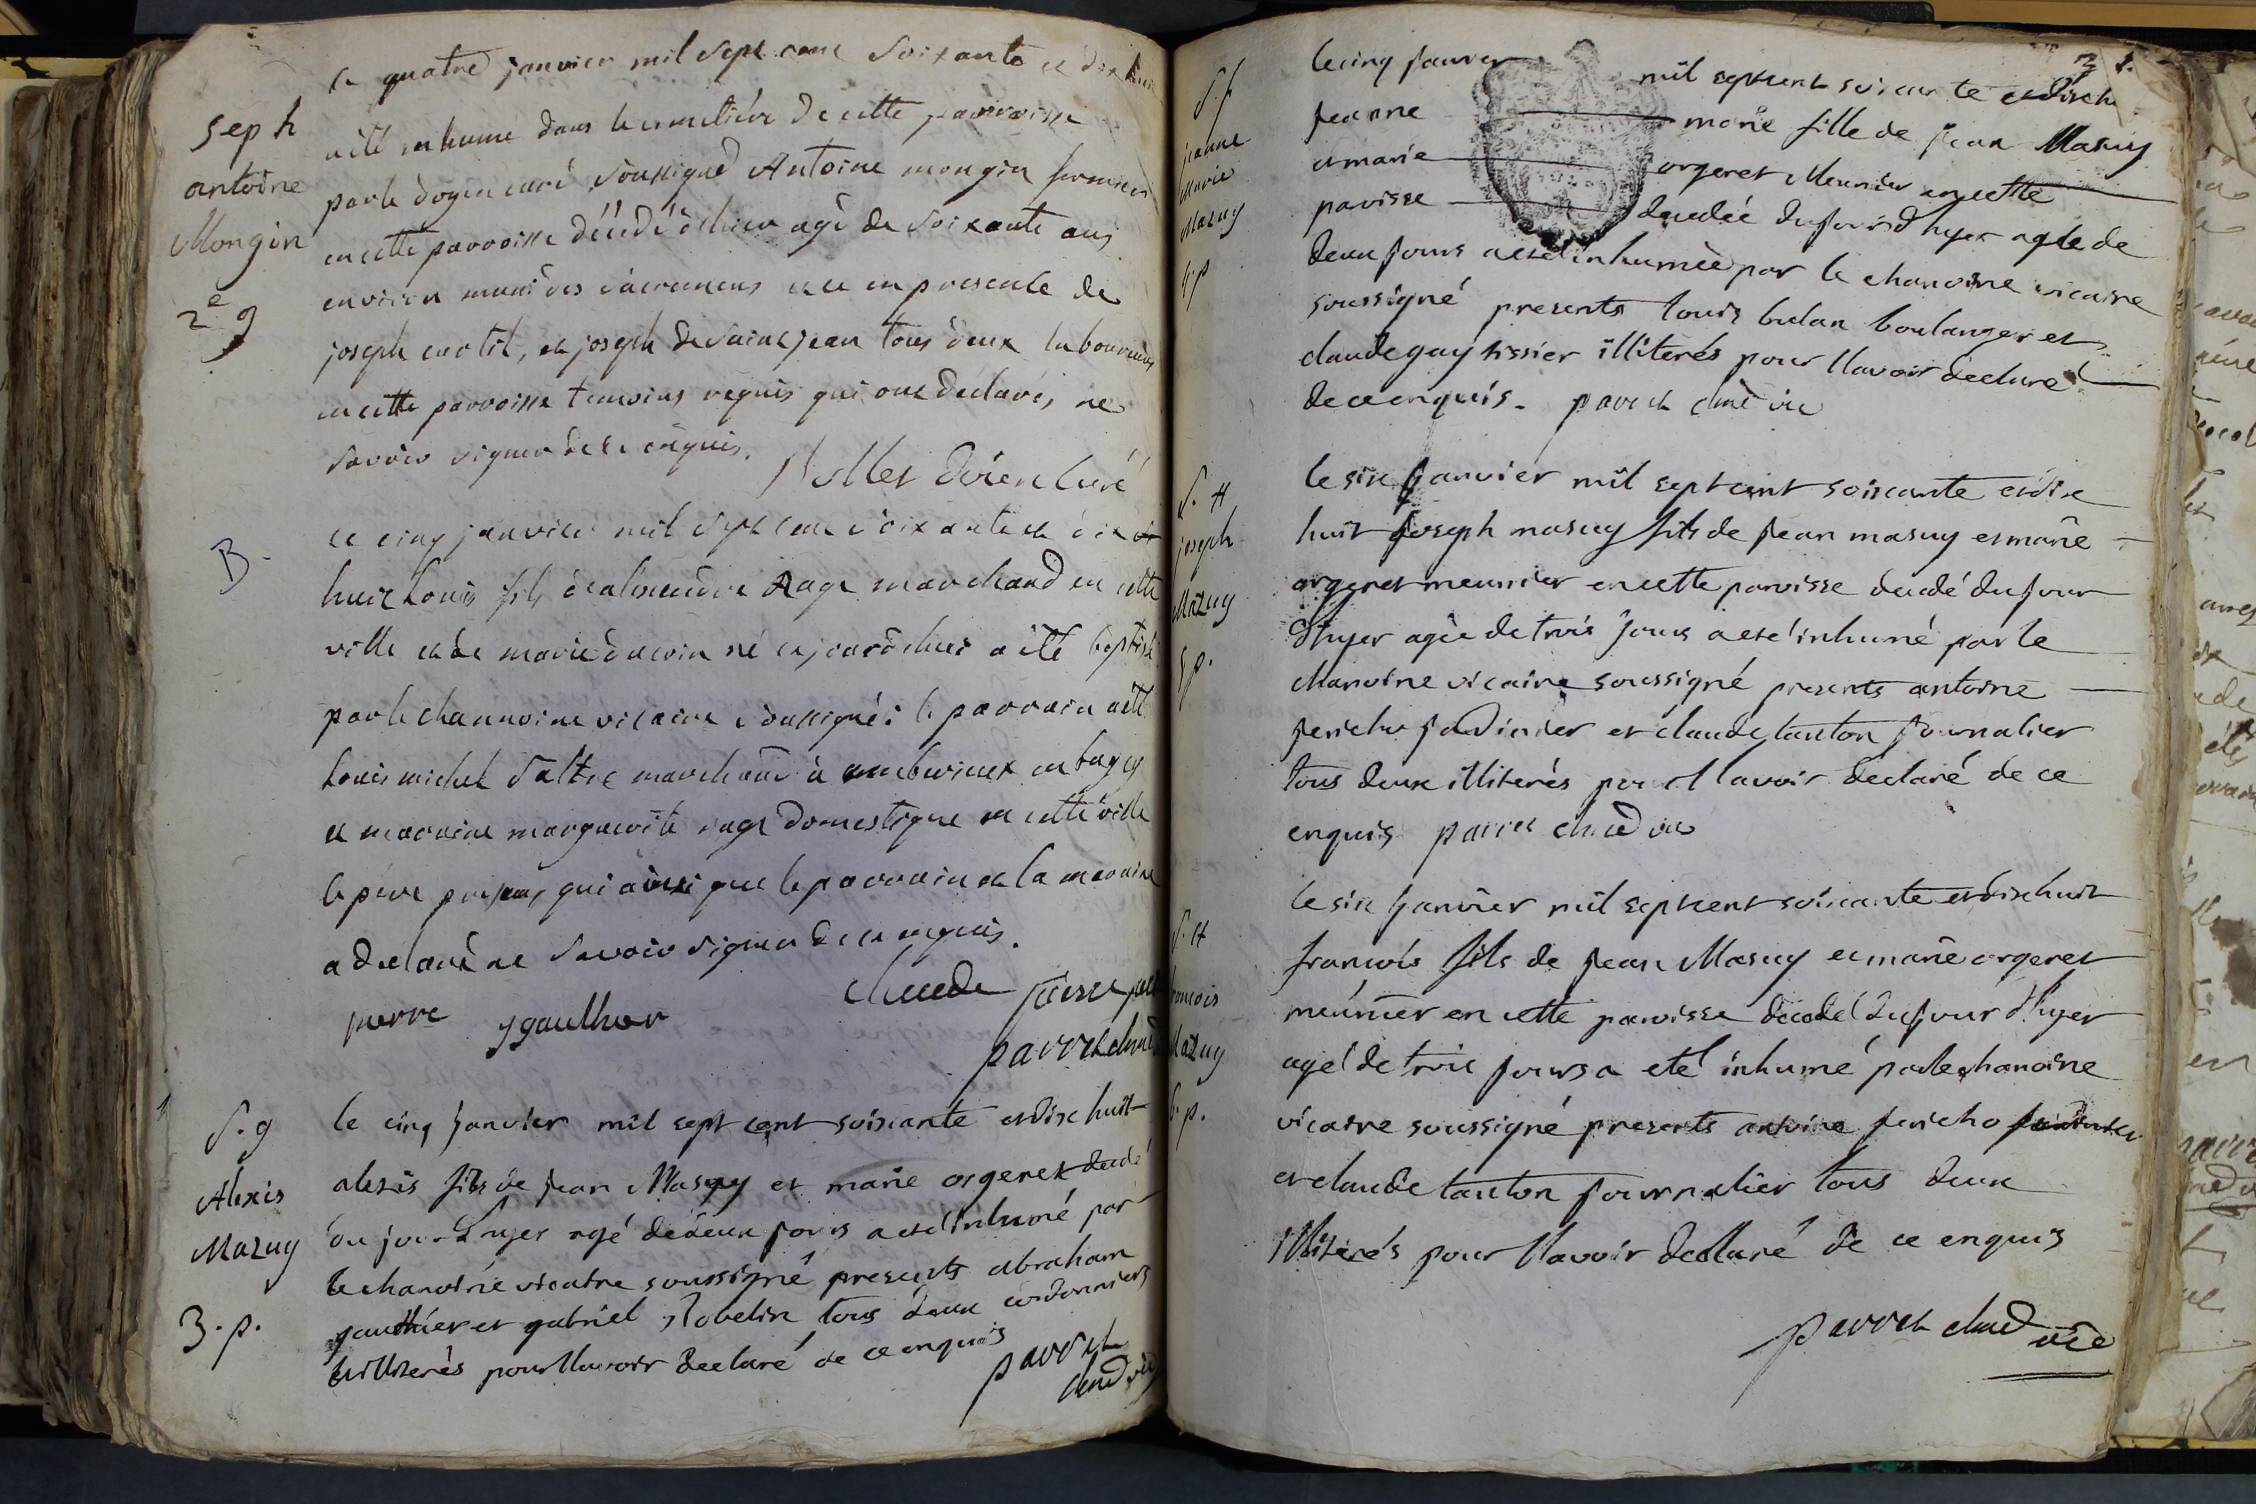 Seph
antoine
Mongin
2e g
le quatre janvier mil sept cent soixante et dix huit
a été inhumé dans le cimetière de cette parroisse
par le doyen curé soussigné Antoine mongin
en cette parroisse décédé d'hier agé de soixante ans
environ muni des sacremens et ce en presence de
joseph curtil, et joseph de saint jean tous deux laboureurs
en cette parroisse temoins requis qui ont déclarés ne
savoir signer de ce enquis.
doien curé
B.
le cinq janvier mil sept cent soixante et dix et
huit Louis fils d'alexandre Rage marchand en cette
ville et de marie né ce jourd'huit a été baptisé
par le channoine vicaire soussigné; le parrain a été
Louis michel marchand à en bugey
et marraine marguerite rage domestique en cette ville
le père présent, qui ainsi que le parrain et la marraine
a déclaré ne savoir signer de ce enquis.
pierre ygaulher
parret
S. g
Alexis
Mazuy
3. p.
le cinq janvier mil sept cent soixante et dix huit
alexis fils de jean Masuy et marie orgeret decedé
du jour d'hyer agé de deux jours a eté inhumé par
le chanoine vicaire soussigné presents abraham
gauthier et gabriel robelin tous deux cordonniers
illiterés pour l'lavoir declaré de ce enquis
parret
S. f
jeanne
Marie
Mazuy
4. p
le cinq janvier mil septcent soixante et dixh
jeanne marie fille de jean Masuy
et marie orgeret Meunier en cette
paroisse decedée du jour d'hyer agée de
deux jours a eté inhumée par le chanoine vicaire
soussigné presents louis bulan boulanger et
claude gay tissier illiterés pour l'lavoir declaré
de ce enquis. parret
S. H
joseph
Mazuy
5 p.
le six janvier mil septcent soixante et dix
huit joseph masuy fils de jean masuy et marie
orgeret meunier en cette paroisse decedé du jour
d'hyer agée de trois jours a eté inhumé par le
chanoine vicaire soussigné presents antoine
jericho jardinier et claude tanton journalier
tous deux illiterés pour l'lavoir declaré de ce
enquis parret
S. H
francois
Mazuy
6. p.
le six janvier mil septcent soixante et dix huit
francois fils de jean Masuy et marie orgeret
meunier en cette paroisse decedé du jour d'hyer
agé de trois jours a eté inhumé par le chanoine
vicaire soussigné presents antoine jericho jardinier
et claude tanton journalier tous deux
illiterés pour l'lavoir declaré de ce enquis
parret